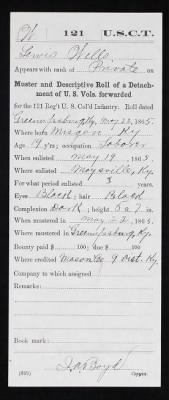 W 121 U.S.C.T.
Lewis Wells
Appears with rank of Private on
Muster and Descriptive Roll of a Detach-
ment of U. S. Vols. forwarded
for the 121 Reg't U. S. Col'd Infantry. Roll dated
Greenupsburg Ky, May 23, 1865.
Where born Mason Ky
Age 19 y'rs; occupation Laborer
When enlisted May 19, 1865.
Where enlisted Maysville, Ky.
For what period enlisted 3 years.
Eyes Black; hair Black
Complexion Dark; height 5 ft. 7 in.
When mustered in May 22, 1865.
Where mustered in Greenupsburg, Ky.
Bounty paid $ 100; due $ 100
Where credited Mason Co 9 Dist. Ky.
Company to which assigned
Remarks:
Book mark:
Boyd
Copyist.